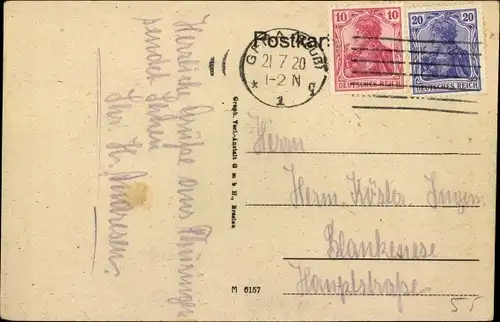 Postkar
GERA (REUß)
21 7 20
1-2 N
* 1 g
10 10
DEUTSCHES REICH
20 20
DEUTSCHES REICH
Herrliche Grüße aus Thüringen
sendet Ihnen
Ihr H. Andresen.
Graph. Verl.-Anstalt G m b H., Breslau
Herrn
Herm. Köster. Ingen.
Blankenese
Hauptstraße
M 6157
55